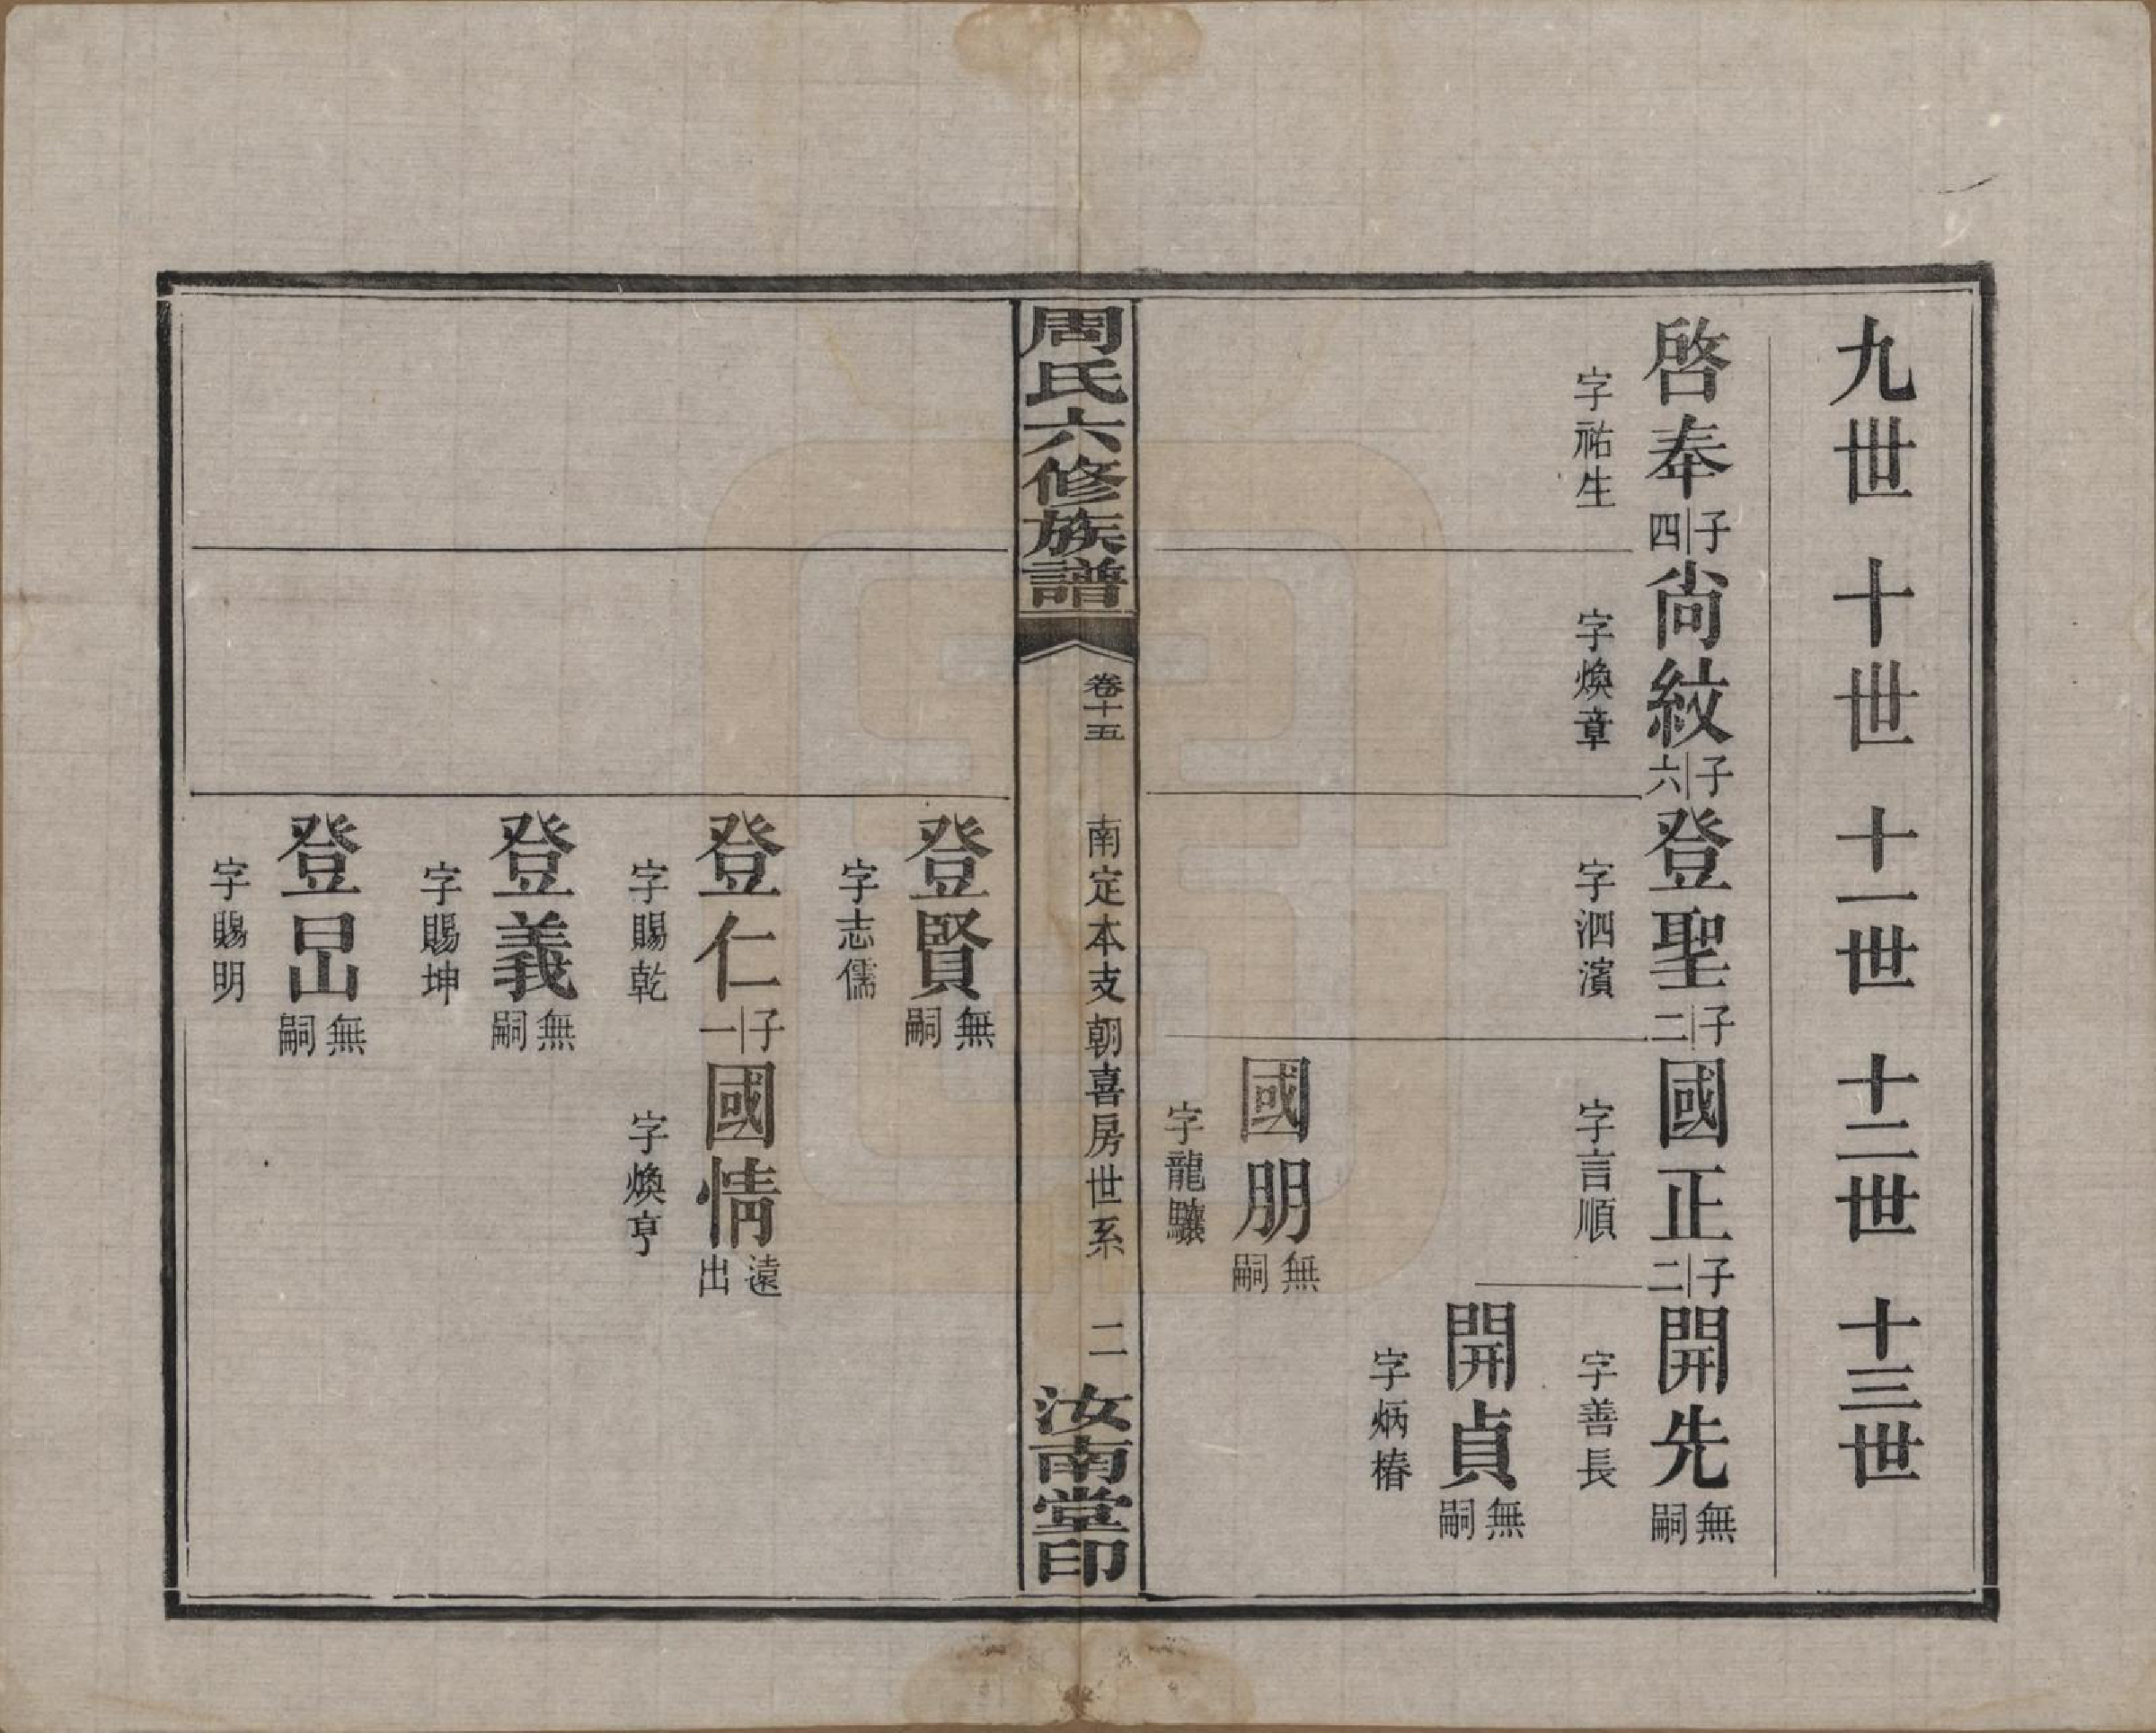 九世 十世 十一世 十二世 十三世
啓奉 子四 尙紋 子六 登聖 子二 國正 子二 開先 無嗣
字祐生 字煥章 字泗濱 字言順 字善長
開貞 無嗣
字炳椿
國朋 無嗣
字龍驤
周氏六修族譜 卷十五 南定本支朝喜房世系 二 汝南堂印
登賢 無嗣
字志儒
登仁 子一 國情 遠出
字賜乾 字煥亨
登義 無嗣
字賜坤
登昷 無嗣
字賜明